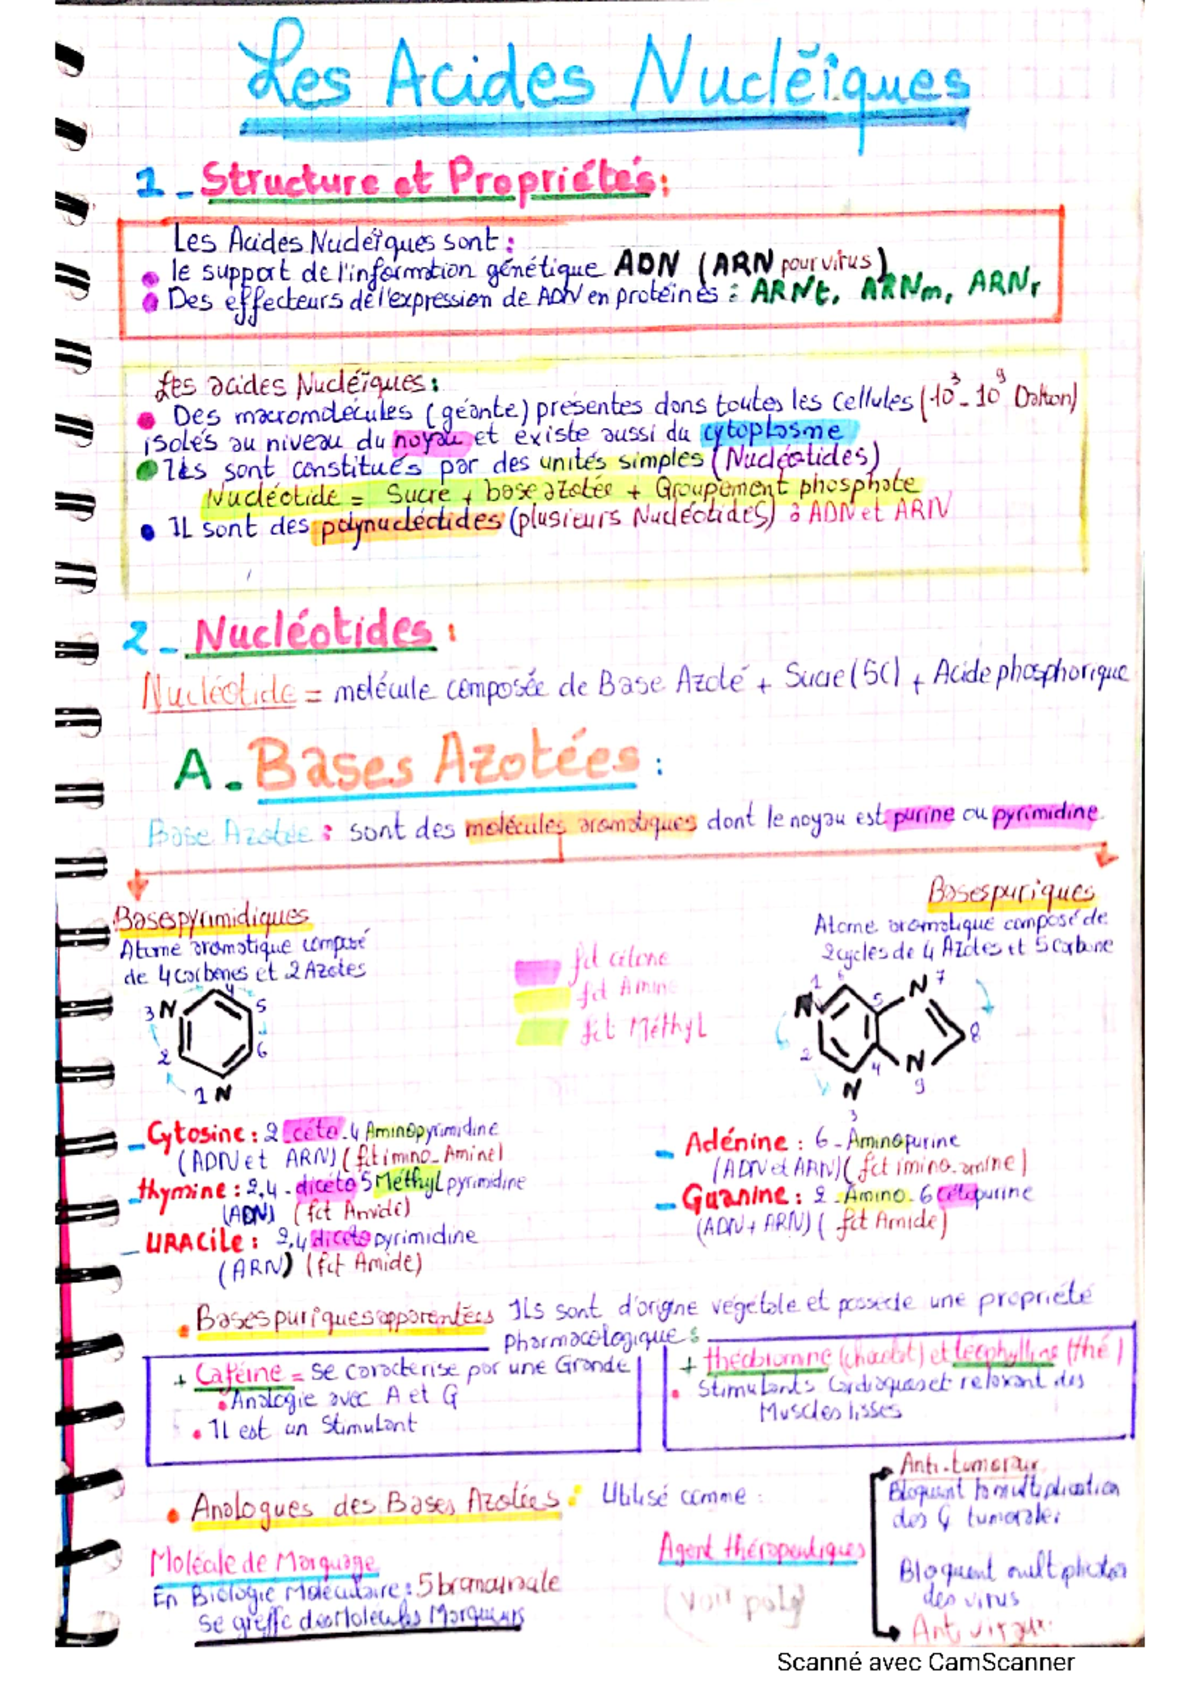 Les Acides Nucléïques
1_Structure et Propriétés:
Les Acides Nucléïques sont :
le support de l'informtion génétique ADN (ARN pour virus)
Des effecteurs de l'expression de ADN en protéines : ARNt, ARNm, ARNr
Les acides Nucléïques :
Des macromolécules (géante) présentes dans toutes les cellules (10³_10⁹ Dalton)
isolés au niveau du noyau et existe aussi du cytoplasme
Ils sont constitués par des unités simples (Nucléotides)
Nucléotide = Sucre + base azotée + Groupement phosphate
IL sont des polynucléotides (plusieurs Nucléotides) à ADN et ARN
2_Nucléotides :
Nucléotide = molécule composée de Base Azoté + Sucre (5C) + Acide phosphorique
A_Bases Azotées :
Base Azotée : sont des molécules aromatiques dont le noyau est purine ou pyrimidine.
Bases pyrimidiques
Atome aromatique composé
de 4 Carbones et 2 Azotes
3 N 4 5
2 6
1 N
fct cétone
fct Amine
fct Méthyl
Bases puriques
Atome aromatique composé de
2 cycles de 4 Azotes et 5 Carbone
1 6 N 7
N 5
2 8
4 N
N 9
3
_Cytosine : 2_céto_4 Aminopyrimidine
(ADN et ARN) (fct imino_Amine)
_thymine : 2,4_dicéto 5 Méthyl pyrimidine
(ADN) (fct Amide)
_URACile : 2,4 dicéto pyrimidine
(ARN) (fct Amide)
_Adénine : 6_Aminopurine
(ADN et ARN) (fct imino_amine)
_Guanine : 2_Amino_6 Cétopurine
(ADN + ARN) (fct Amide)
Bases puriques apparentées Ils sont d'origine végétale et possède une propriété
pharmacologique :
+ Caféine = se caractérise par une Grande
Analogie avec A et G
Il est un Stimulant
+ théobromine (chocolat) et téophylline (thé)
Stimulants Cardiaques et relaxant des
Muscles lisses
Analogues des Bases Azotées : Utilisé comme :
Molécule de Marquage
En Biologie Moléculaire : 5
se greffe des Molécules Marqueurs
Agent thérapeutiques
(Voir poly)
Anti-tumoraux
Bloquent la multiplication
des tumorales
Bloquent multiplication
des virus
Antiviraux
Scanné avec CamScanner